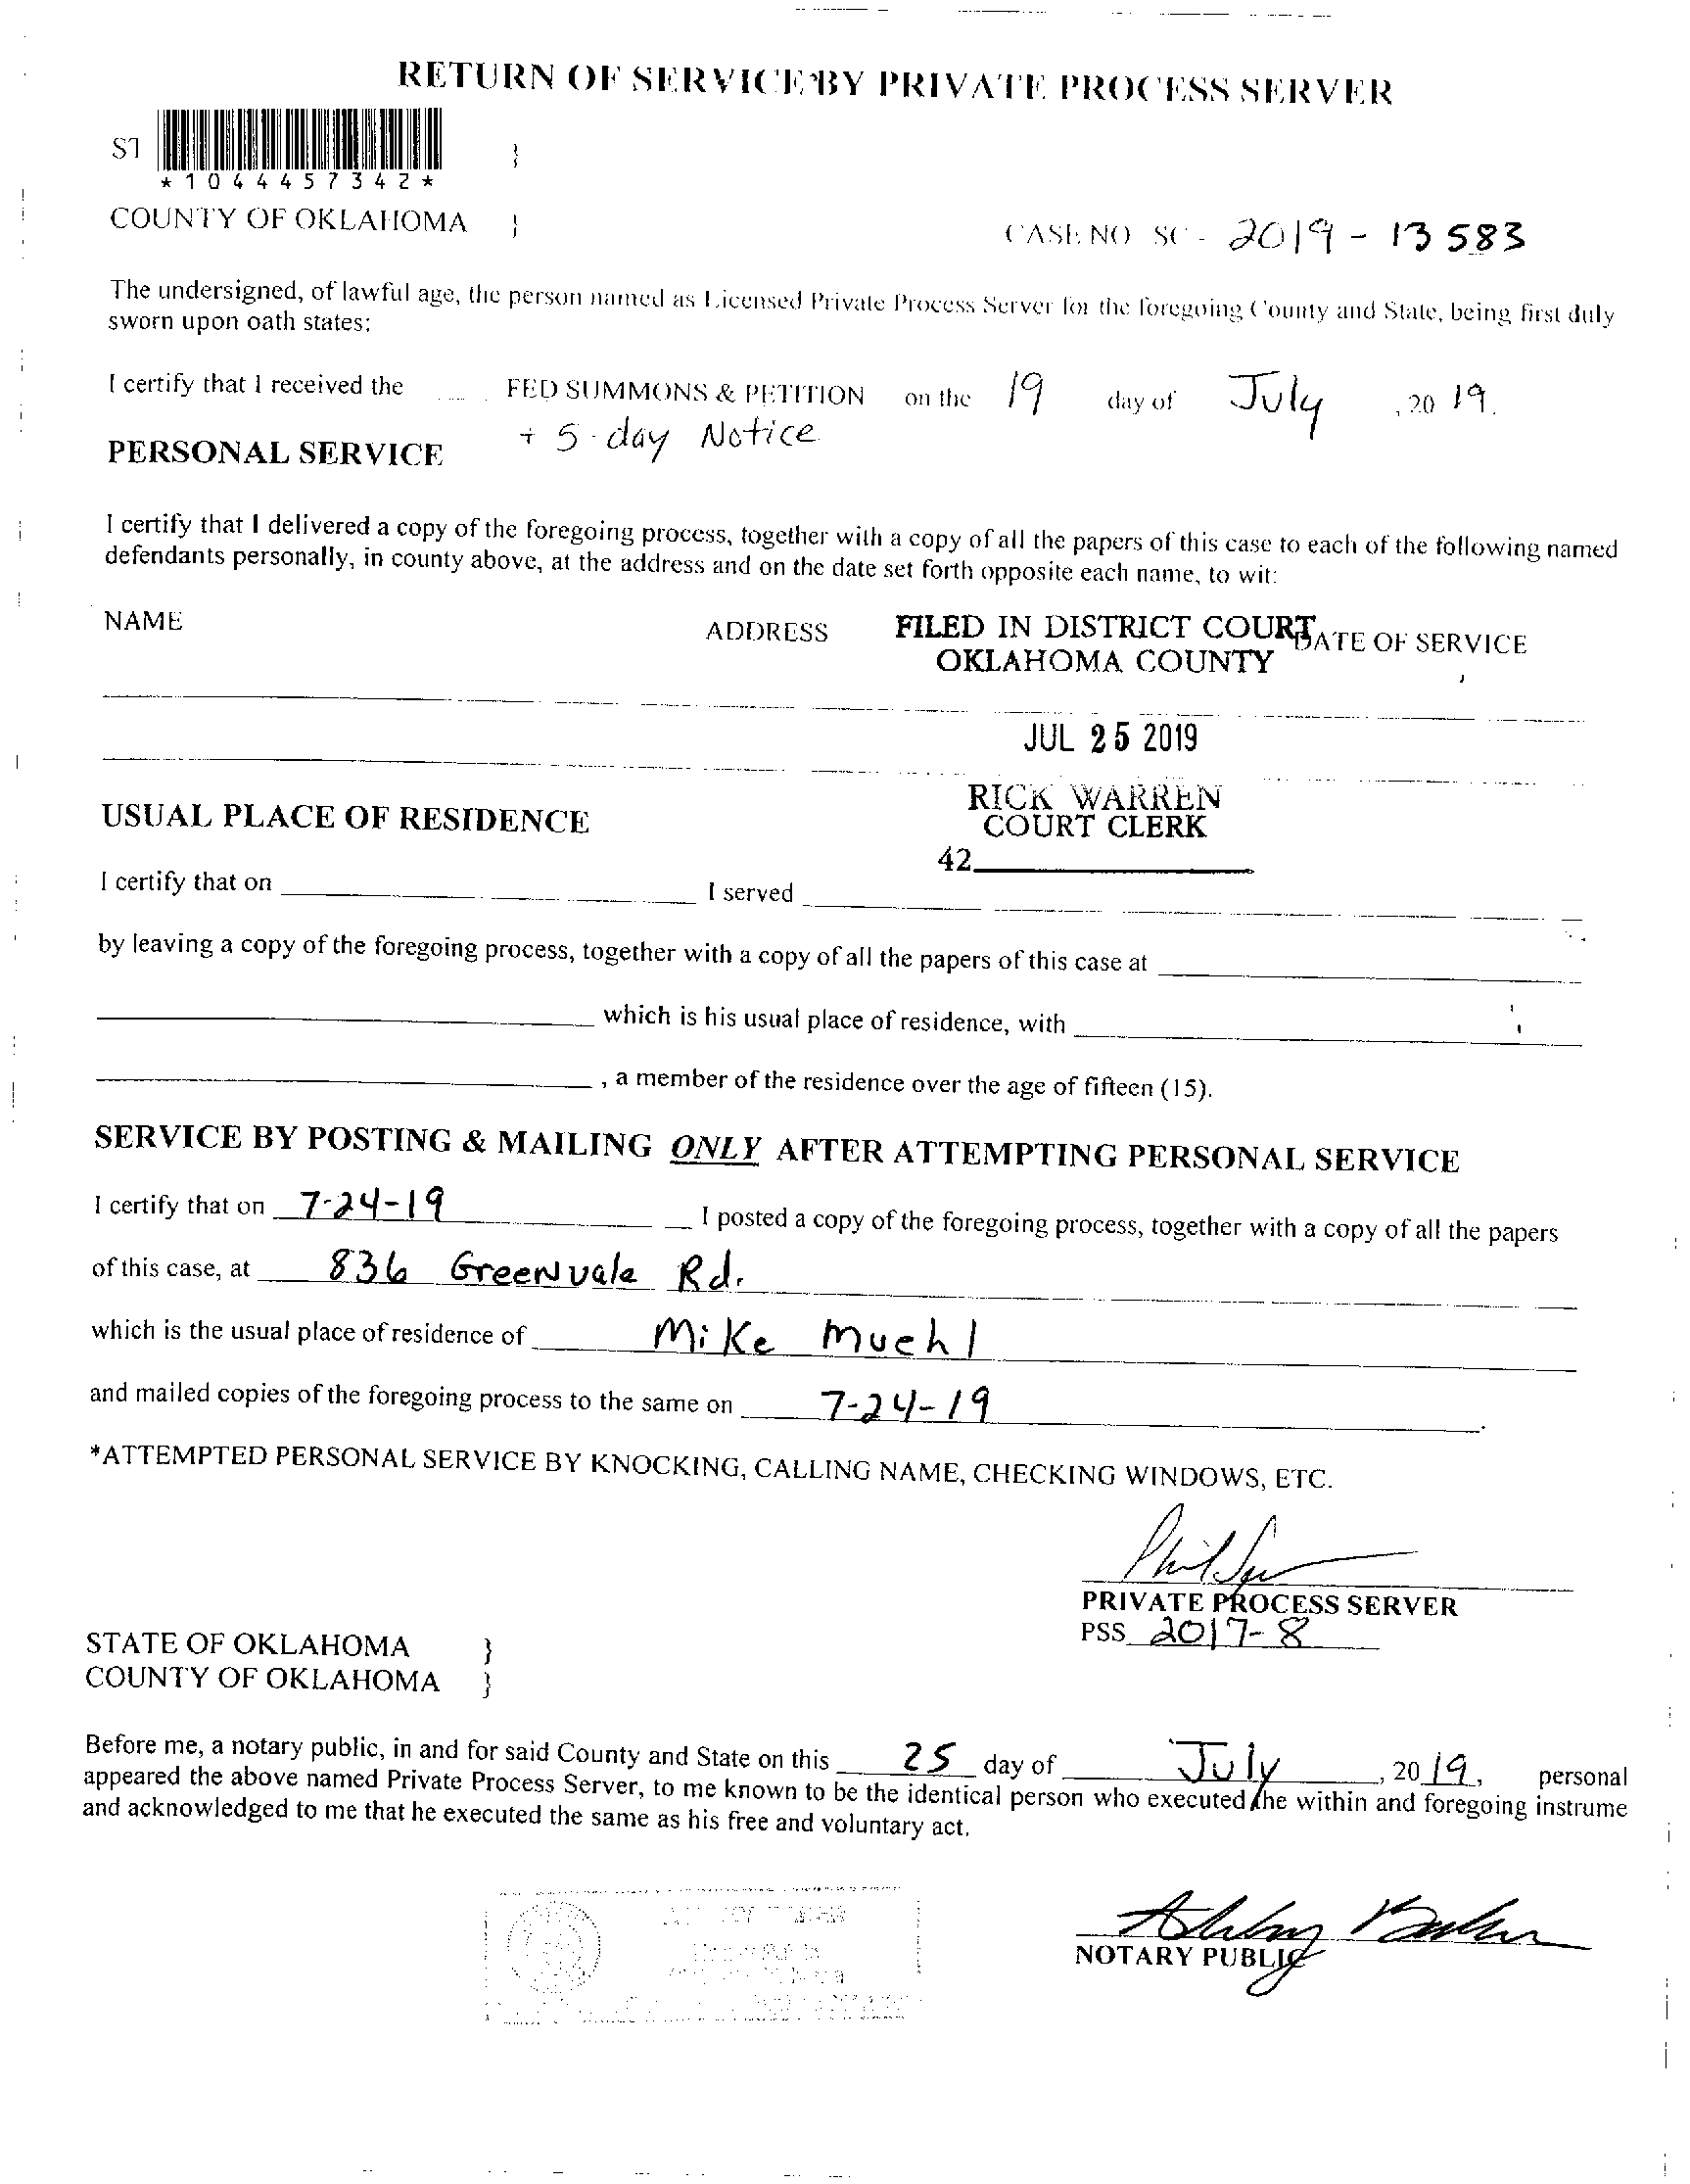 RETURN OF SERVICE BY PRIVATE PROCESS SERVER
ST
*1044457342*
COUNTY OF OKLAHOMA }
CASE NO SC - 2019 - 13583
The undersigned, of lawful age, the person named as Licensed Private Process Server for the foregoing County and State, being first duly
sworn upon oath states:
I certify that I received the FED SUMMONS & PETITION on the 19 day of July , 20 19.
+ 5-day Notice
PERSONAL SERVICE
I certify that I delivered a copy of the foregoing process, together with a copy of all the papers of this case to each of the following named
defendants personally, in county above, at the address and on the date set forth opposite each name, to wit:
NAME ADDRESS DATE OF SERVICE
FILED IN DISTRICT COURT
OKLAHOMA COUNTY
JUL 25 2019
RICK WARREN
COURT CLERK
42
USUAL PLACE OF RESIDENCE
I certify that on I served
by leaving a copy of the foregoing process, together with a copy of all the papers of this case at
which is his usual place of residence, with
, a member of the residence over the age of fifteen (15).
SERVICE BY POSTING & MAILING ONLY AFTER ATTEMPTING PERSONAL SERVICE
I certify that on 7-24-19 I posted a copy of the foregoing process, together with a copy of all the papers
of this case, at 836 Greenvale Rd.
which is the usual place of residence of Mike Muehl
and mailed copies of the foregoing process to the same on 7-24-19.
*ATTEMPTED PERSONAL SERVICE BY KNOCKING, CALLING NAME, CHECKING WINDOWS, ETC.
PRIVATE PROCESS SERVER
PSS 2017-8
STATE OF OKLAHOMA }
COUNTY OF OKLAHOMA }
Before me, a notary public, in and for said County and State on this 25 day of July, 20 19, personal
appeared the above named Private Process Server, to me known to be the identical person who executed the within and foregoing instrume
and acknowledged to me that he executed the same as his free and voluntary act.
NOTARY PUBLIC